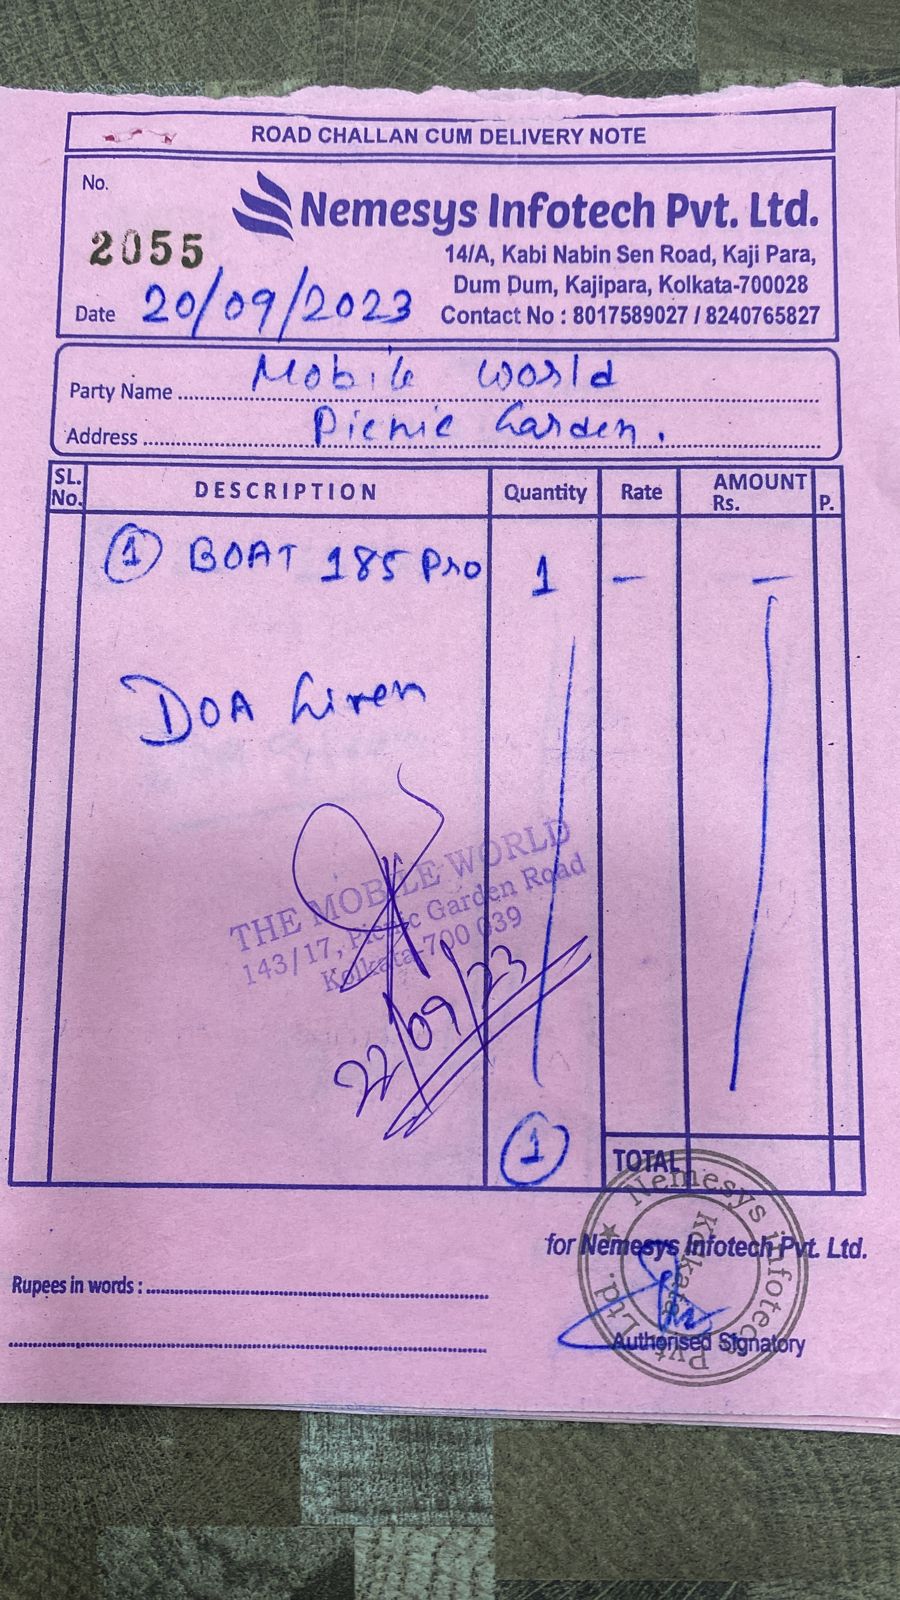 ROAD CHALLAN CUM DELIVERY NOTE
No.
2055
Nemesys Infotech Pvt. Ltd.
14/A, Kabi Nabin Sen Road, Kaji Para,
Dum Dum, Kajipara, Kolkata-700028
Date 20/09/2023
Contact No : 8017589027 / 8240765827
Party Name Mobile World
Address Picnic Garden.
SL. No. DESCRIPTION Quantity Rate AMOUNT Rs. P.
① BOAT 185 Pro 1 - -
DOA Given
THE MOBILE WORLD
143/17, Picnic Garden Road
Kolkata-700 039
22/09/23
①
TOTAL
for Nemesys Infotech Pvt. Ltd.
Nemesys Infotech Pvt. Ltd. ★
Kolkata
Rupees in words :
Authorised Signatory